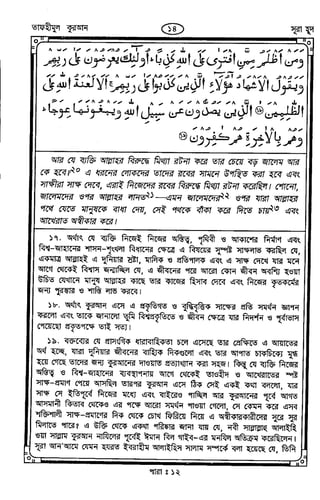 তাফহীমুল কুরআন
১৪
সূরা হূদ
وَمَنْ أَظْلَمُ مِمَّنِ افْتَرَىٰ عَلَى اللهِ كَذِبًا ۚ أُولَٰئِكَ يُعْرَضُونَ عَلَىٰ رَبِّهِمْ
وَيَقُولُ الْأَشْهَادُ هَٰؤُلَاءِ الَّذِينَ كَذَبُوا عَلَىٰ رَبِّهِمْ ۚ أَلَا لَعْنَةُ اللهِ عَلَى
الظَّالِمِينَ ۝ الَّذِينَ يَصُدُّونَ عَنْ سَبِيلِ اللهِ وَيَبْغُونَهَا عِوَجًا ۚ
وَهُمْ بِالْآخِرَةِ هُمْ كَافِرُونَ ۝
আর যে ব্যক্তি আল্লাহর বিরুদ্ধে মিথ্যা রটনা করে তার চেয়ে বড় জালেম আর
কে হবে?২০ এ ধরনের লোকদের তাদের রবের সামনে উপস্থিত করা হবে এবং
সাক্ষীরা সাক্ষ দেবে, এরাই নিজেদের রবের বিরুদ্ধে মিথ্যা রটনা করেছিল। শোনো,
জালেমদের ওপর আল্লাহর লানত২১—এমন জালেমদের২২ ওপর যারা আল্লাহর
পথে যেতে মানুষকে বাধা দেয়, সেই পথকে বাঁকা করে দিতে চায়২৩ এবং
আখেরাত অস্বীকার করে।
১৭. অর্থাৎ যে ব্যক্তি নিজেই নিজের অস্তিত্ব, পৃথিবী ও আকাশের নির্মাণ এবং
বিশ্ব-জাহানের শাসন-শৃংখলা বিধানের ক্ষেত্রে এ বিষয়ের সুস্পষ্ট সাক্ষলাভ করছিল যে,
একমাত্র আল্লাহই এ দুনিয়ার স্রষ্টা, মালিক ও প্রতিপালক এবং এ সাক্ষ দেখে যার মনে
আগে থেকেই বিশ্বাস জন্মাচ্ছিল যে, এ জীবনের পরে আরো কোন জীবন অবশ্যি হওয়া
উচিত যেখানে মানুষ আল্লাহর কাছে তার কাজের হিসাব দেবে এবং নিজের কৃতকর্মের
জন্য পুরস্কার ও শাস্তি লাভ করবে।
১৮. অর্থাৎ কুরআন এসে এ প্রকৃতিগত ও বুদ্ধিবৃত্তিক সাক্ষের প্রতি সমর্থন জ্ঞাপন
করলো এবং তাকে জানালো তুমি বিশ্বপ্রকৃতিতে ও জীবন ক্ষেত্রে যার নিদর্শন ও পূর্বাভাস
পেয়েছো প্রকৃতপক্ষে তাই সত্য।
১৯. বক্তব্যের যে প্রাসংগিক ধারাবাহিকতা চলে এসেছে তার প্রেক্ষিতে এ আয়াতের
অর্থ হচ্ছে, যারা দুনিয়ার জীবনের বাহ্যিক দিকগুলো এবং তার আপাত চাকচিক্যে মুগ্ধ
হয়ে গেছে তাদের জন্য কুরআনের দাওয়াত প্রত্যাখ্যান করা সহজ। কিন্তু যে ব্যক্তি নিজের
অস্তিত্ব ও বিশ্ব-জাহানের ব্যবস্থাপনায় আগে থেকেই তাওহীদ ও আখেরাতের স্পষ্ট
সাক্ষ-প্রমাণ পেয়ে আসছিল তারপর কুরআন এসে ঠিক সেই একই কথা বললো, যার
সাক্ষ সে ইতিপূর্বে নিজের মধ্যে এবং বাইরেও পাচ্ছিল আর কুরআনের পূর্বে আগত
আসমানী কিতাব থেকেও এর পক্ষে আরো সমর্থন পাওয়া গেলো, সে কেমন করে এসব
শক্তিশালী সাক্ষ-প্রমাণের দিক থেকে চোখ ফিরিয়ে নিয়ে এ অস্বীকারকারীদের সুরে সুর
মিলাতে পারে? এ উক্তি থেকে একথা পরিষ্কার জানা যায় যে, নবী সাল্লাল্লাহু আলাইহি
ওয়া সাল্লাম কুরআন নাযিলের পূর্বেই ঈমান বিল গাইব-এর মনযিল অতিক্রম করেছিলেন।
সূরা আন'আমে যেমন হযরত ইবরাহীম আলাইহিস সালাম সম্পর্কে বলা হয়েছে যে, তিনি
পারা : ১২